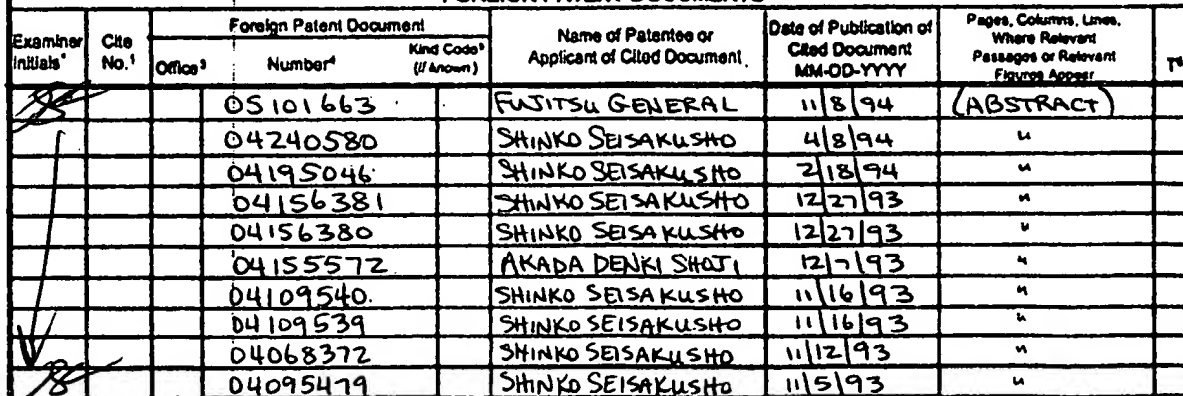 Examiner Initials* Cite No.¹ Foreign Patent Document Name of Patentee or Applicant of Cited Document Date of Publication of Cited Document MM-DD-YYYY Pages, Columns, Lines, Where Relevant Passages or Relevant Figures Appear T⁶
Office³ Number⁴ Kind Code⁵ (if known)
05101663 FUJITSU GENERAL 11/8/94 (ABSTRACT)
04240580 SHINKO SEISAKUSHO 4/8/94 "
04195046 SHINKO SEISAKUSHO 2/18/94 "
04156381 SHINKO SEISAKUSHO 12/27/93 "
04156380 SHINKO SEISAKUSHO 12/27/93 "
04155572 AKADA DENKI SHOJI 12/7/93 "
04109540 SHINKO SEISAKUSHO 11/16/93 "
04109539 SHINKO SEISAKUSHO 11/16/93 "
04068372 SHINKO SEISAKUSHO 11/12/93 "
04095479 SHINKO SEISAKUSHO 11/5/93 "